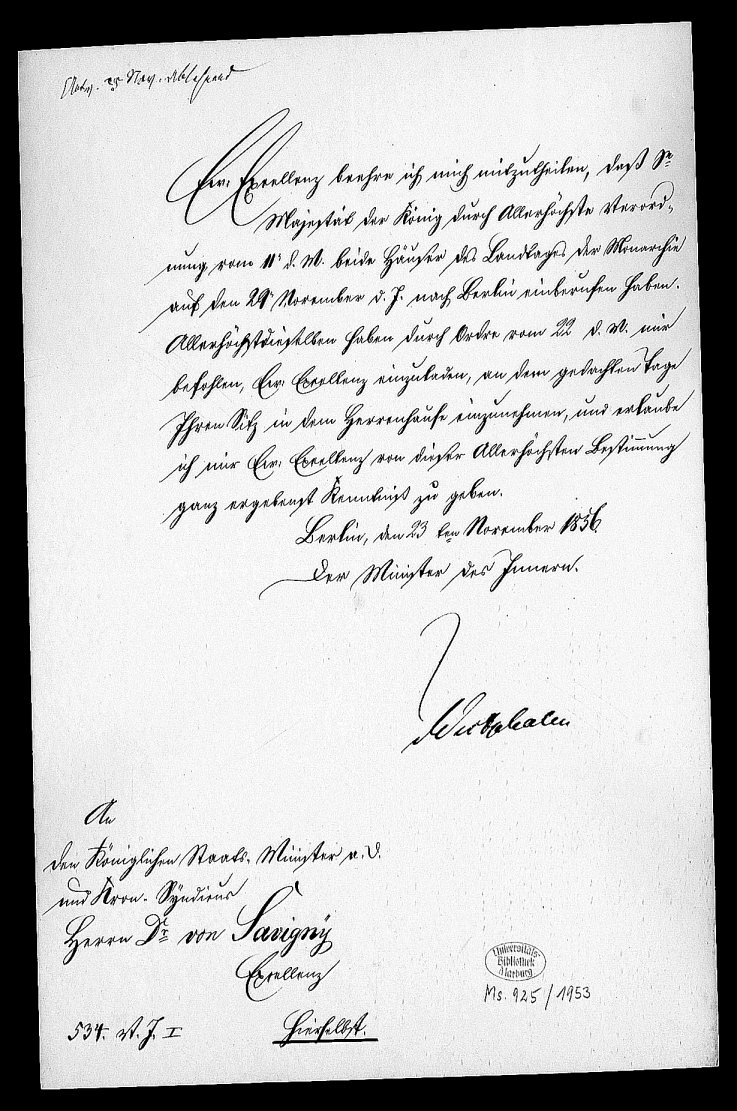 Antw. 25 Nov. ablehnend
Ew. Excellenz beehre ich mich mitzutheilen, daß Se
Majestät der König durch Allerhöchste Verord-
nung vom 11t d. M. beide Häuser des Landtages der Monarchie
auf den 29t November d. J. nach Berlin einberufen haben.
Allerhöchstdieselben haben durch Ordre vom 22 d. M. mir
befohlen, Ew. Excellenz einzuladen, an dem gedachten Tage
Ihren Sitz in dem Herrenhause einzunehmen, und erlaube
ich mir Ew. Excellenz von dieser Allerhöchsten Bestimmung
ganz ergebenst Kenntniß zu geben.
Berlin, den 23 ten November 1856.
Der Minister des Innern.
Westphalen
An
den Königlichen Staats-Minister a. D.
und Kron-Syndicus
Herrn Dr von Savigny
Excellenz
Hierselbst.
534. J. I
Universitäts-
Bibliothek
Marburg
Ms. 925/1953